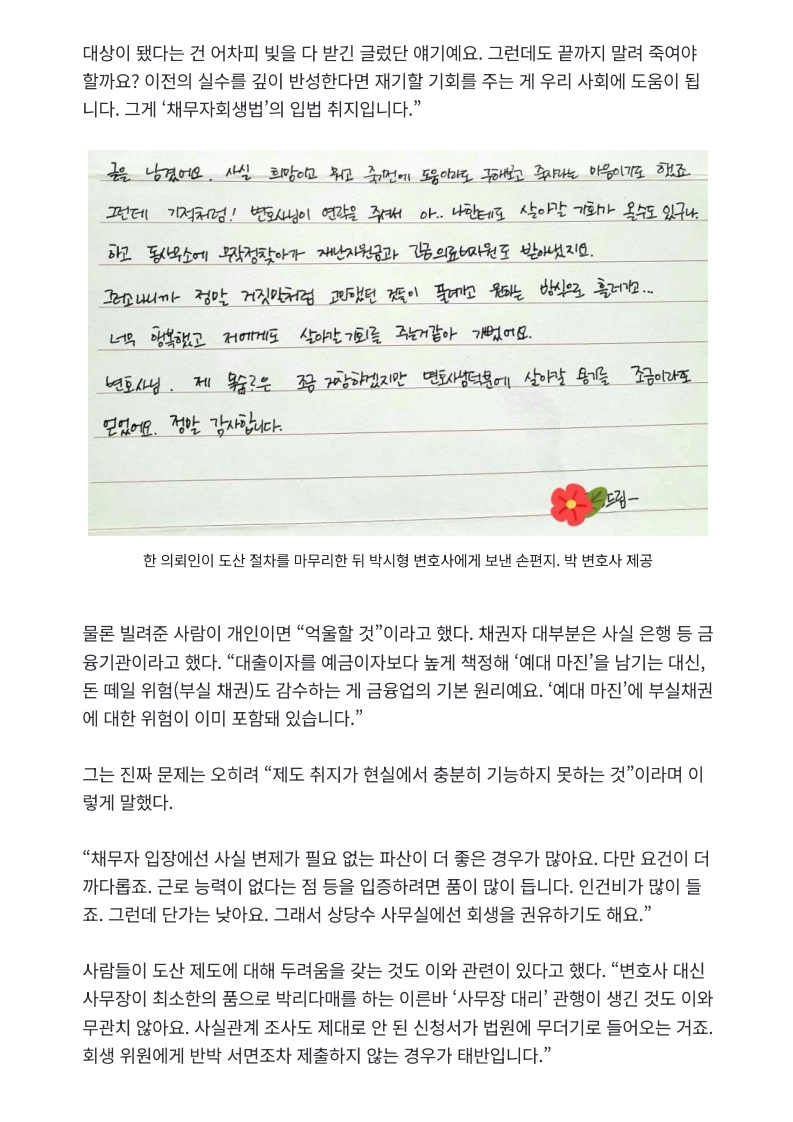 대상이 됐다는 건 어차피 빚을 다 받긴 글렀단 얘기예요. 그런데도 끝까지 말려 죽여야
할까요? 이전의 실수를 깊이 반성한다면 재기할 기회를 주는 게 우리 사회에 도움이 됩
니다. 그게 ‘채무자회생법’의 입법 취지입니다.”
글을 남겼어요. 사실 희망이고 뭐고 죽기전에 도움이라도 구해보고 죽자라는 마음이기도 했죠
그런데 기적처럼! 변호사님이 연락을 주셔서 아.. 나한테도 살아갈 기회가 올수도 있구나.
하고 동사무소에 무작정찾아가 재난지원금과 긴급의료비지원도 받아냈지요.
그러고나니까 정말 거짓말처럼 고민했던 것들이 풀려가고 원하는 방식으로 흘러가고...
너무 행복했고 저에게도 살아갈 기회를 주는거같아 기뻤어요.
변호사님. 제 목숨?은 조금 거창하겠지만 변호사님덕분에 살아갈 용기를 조금이라도
얻었어요. 정말 감사합니다.
드림-
한 의뢰인이 도산 절차를 마무리한 뒤 박시형 변호사에게 보낸 손편지. 박 변호사 제공
물론 빌려준 사람이 개인이면 “억울할 것”이라고 했다. 채권자 대부분은 사실 은행 등 금
융기관이라고 했다. “대출이자를 예금이자보다 높게 책정해 ‘예대 마진’을 남기는 대신,
돈 떼일 위험(부실 채권)도 감수하는 게 금융업의 기본 원리예요. ‘예대 마진’에 부실채권
에 대한 위험이 이미 포함돼 있습니다.”
그는 진짜 문제는 오히려 “제도 취지가 현실에서 충분히 기능하지 못하는 것”이라며 이
렇게 말했다.
“채무자 입장에선 사실 변제가 필요 없는 파산이 더 좋은 경우가 많아요. 다만 요건이 더
까다롭죠. 근로 능력이 없다는 점 등을 입증하려면 품이 많이 듭니다. 인건비가 많이 들
죠. 그런데 단가는 낮아요. 그래서 상당수 사무실에선 회생을 권유하기도 해요.”
사람들이 도산 제도에 대해 두려움을 갖는 것도 이와 관련이 있다고 했다. “변호사 대신
사무장이 최소한의 품으로 박리다매를 하는 이른바 ‘사무장 대리’ 관행이 생긴 것도 이와
무관치 않아요. 사실관계 조사도 제대로 안 된 신청서가 법원에 무더기로 들어오는 거죠.
회생 위원에게 반박 서면조차 제출하지 않는 경우가 태반입니다.”